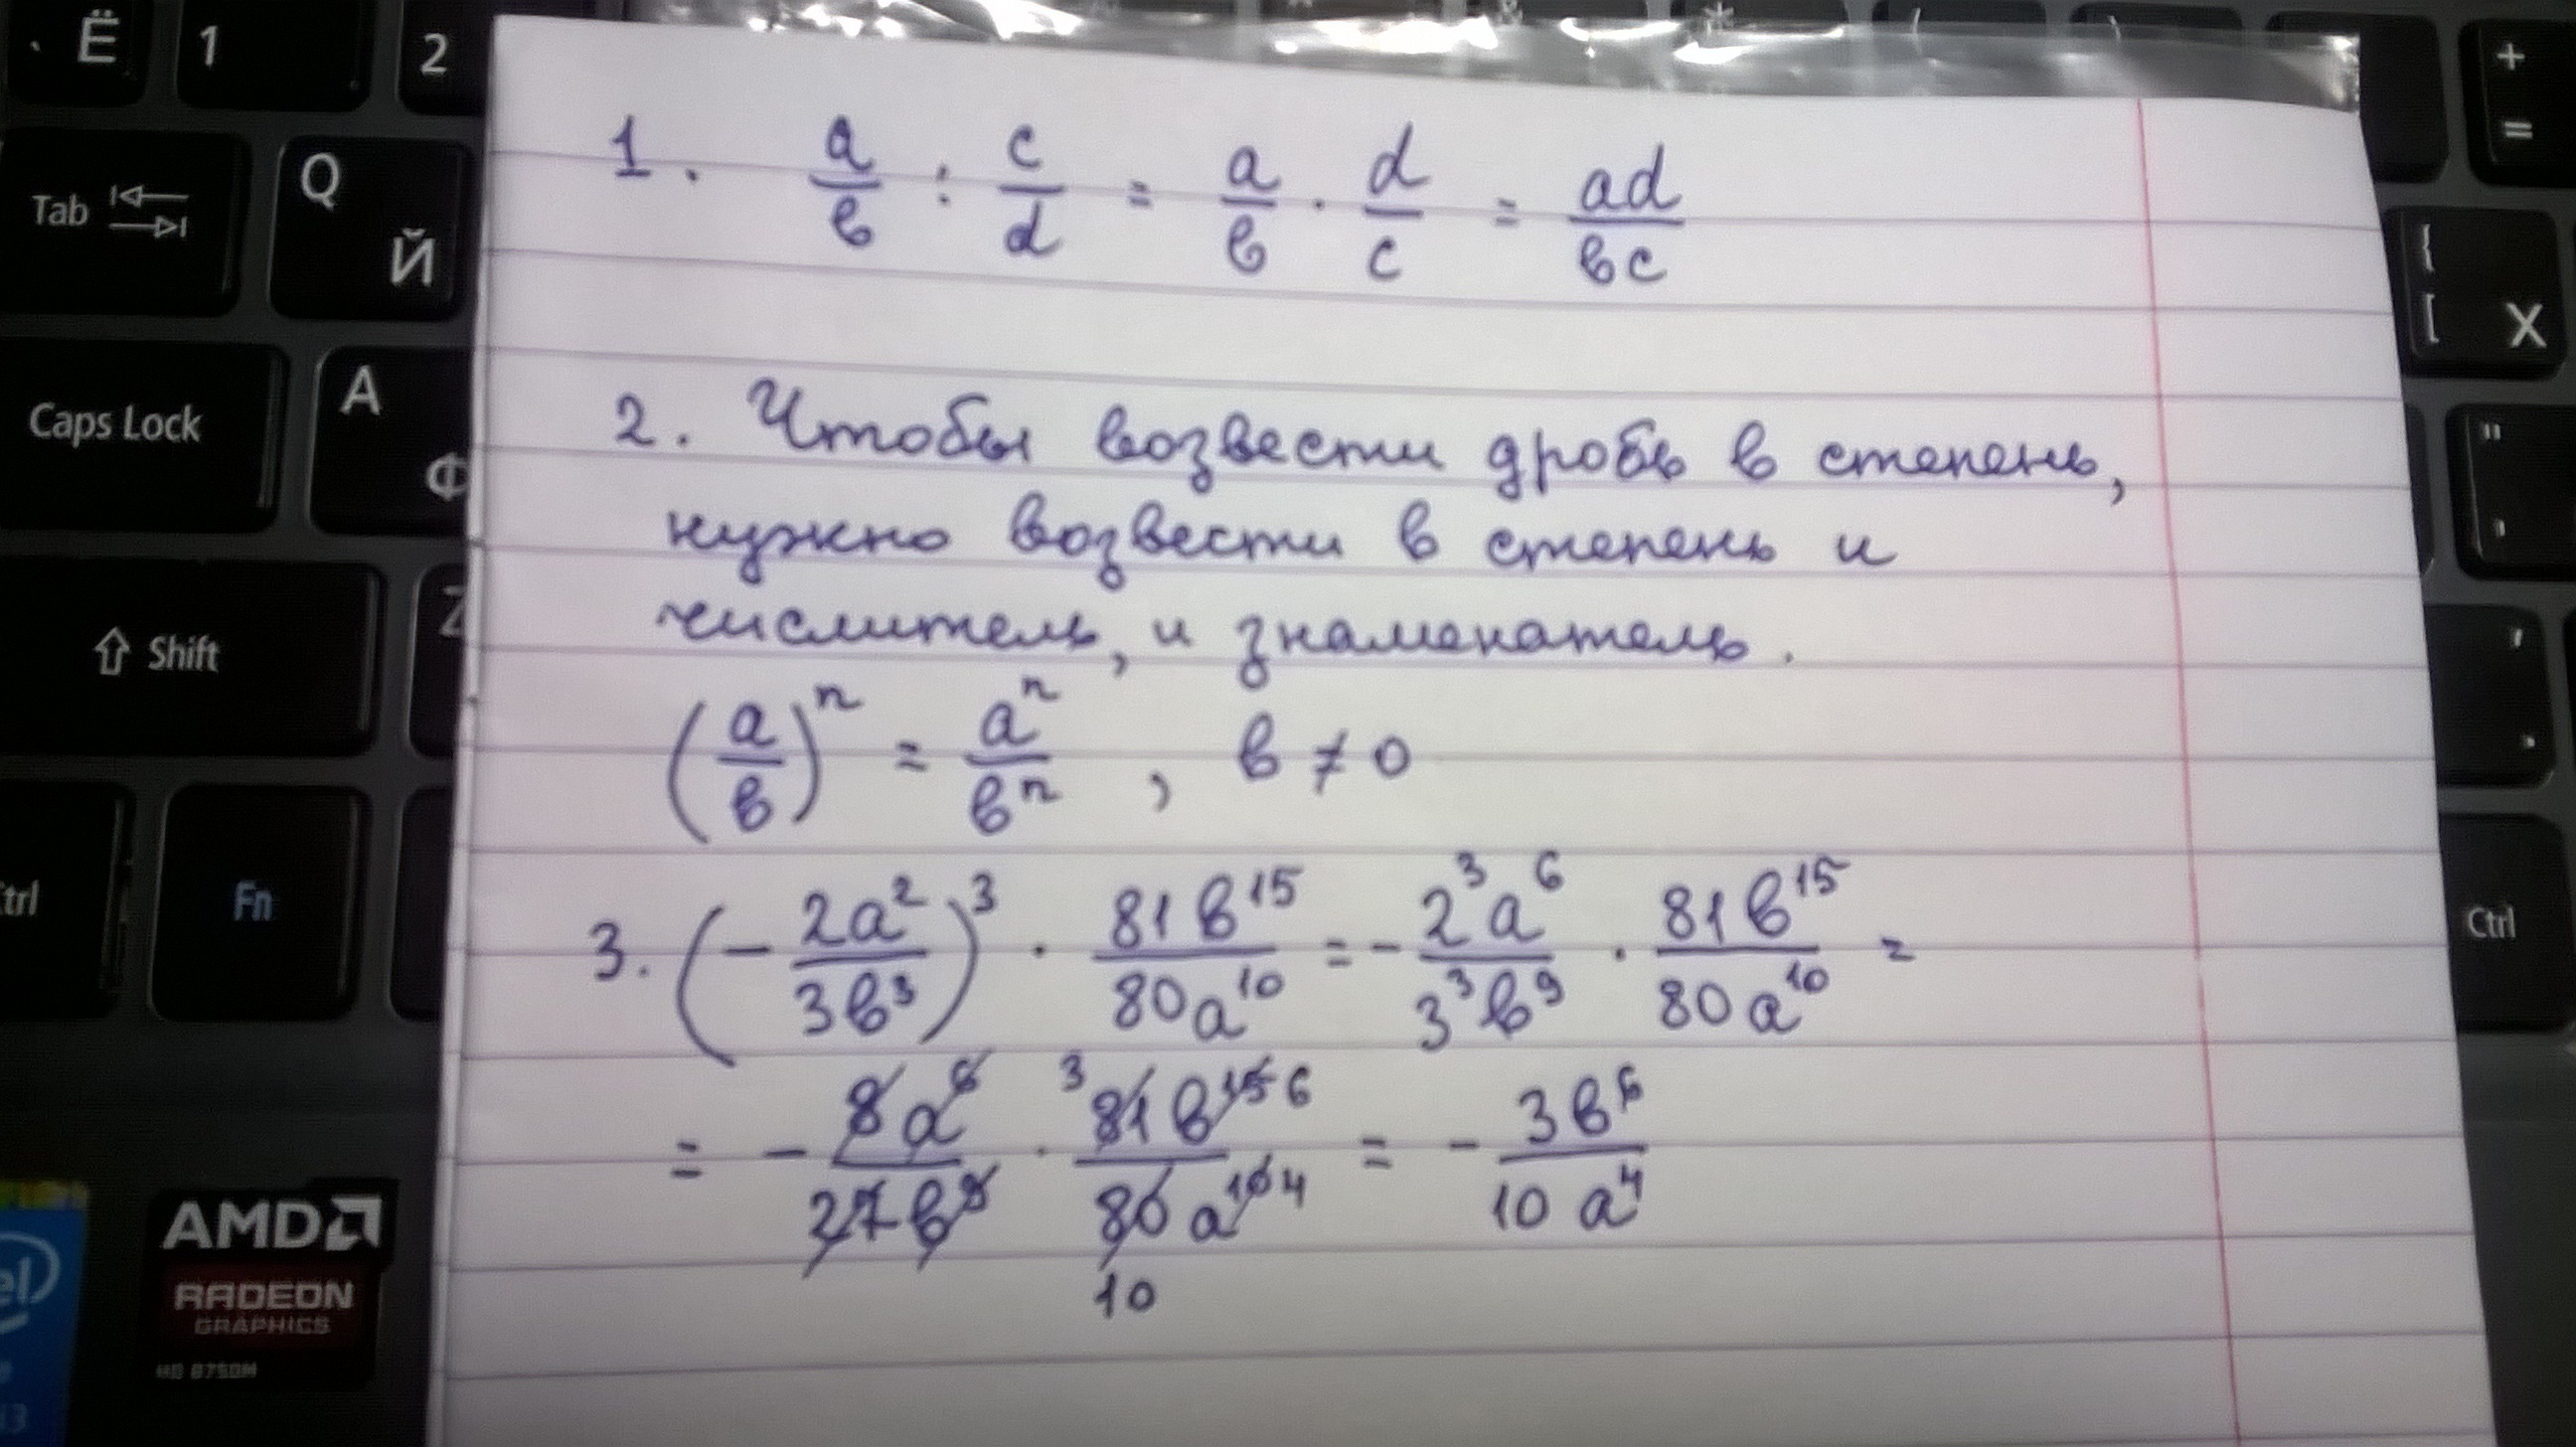 Ё 1 2
Tab Q Й
Caps Lock A Ф
Shift Z
trl Fn
AMD
RADEON
GRAPHICS
HD 8750M
+ =
{ [ X
" '
Ctrl
1. a/в : c/d = a/в · d/c = ad/вc
2. Чтобы возвести дробь в степень,
нужно возвести в степень и
числитель, и знаменатель.
(a/в)ⁿ = aⁿ/вⁿ , в ≠ 0
3. (- 2a²/3в³)³ · 81в¹⁵/80a¹⁰ = - 2³a⁶/3³в⁹ · 81в¹⁵/80a¹⁰ =
= - 8a⁶/27в⁹ · 3 81в¹⁵ 6/80a¹⁰ 4 = - 3в⁶/10a⁴
10